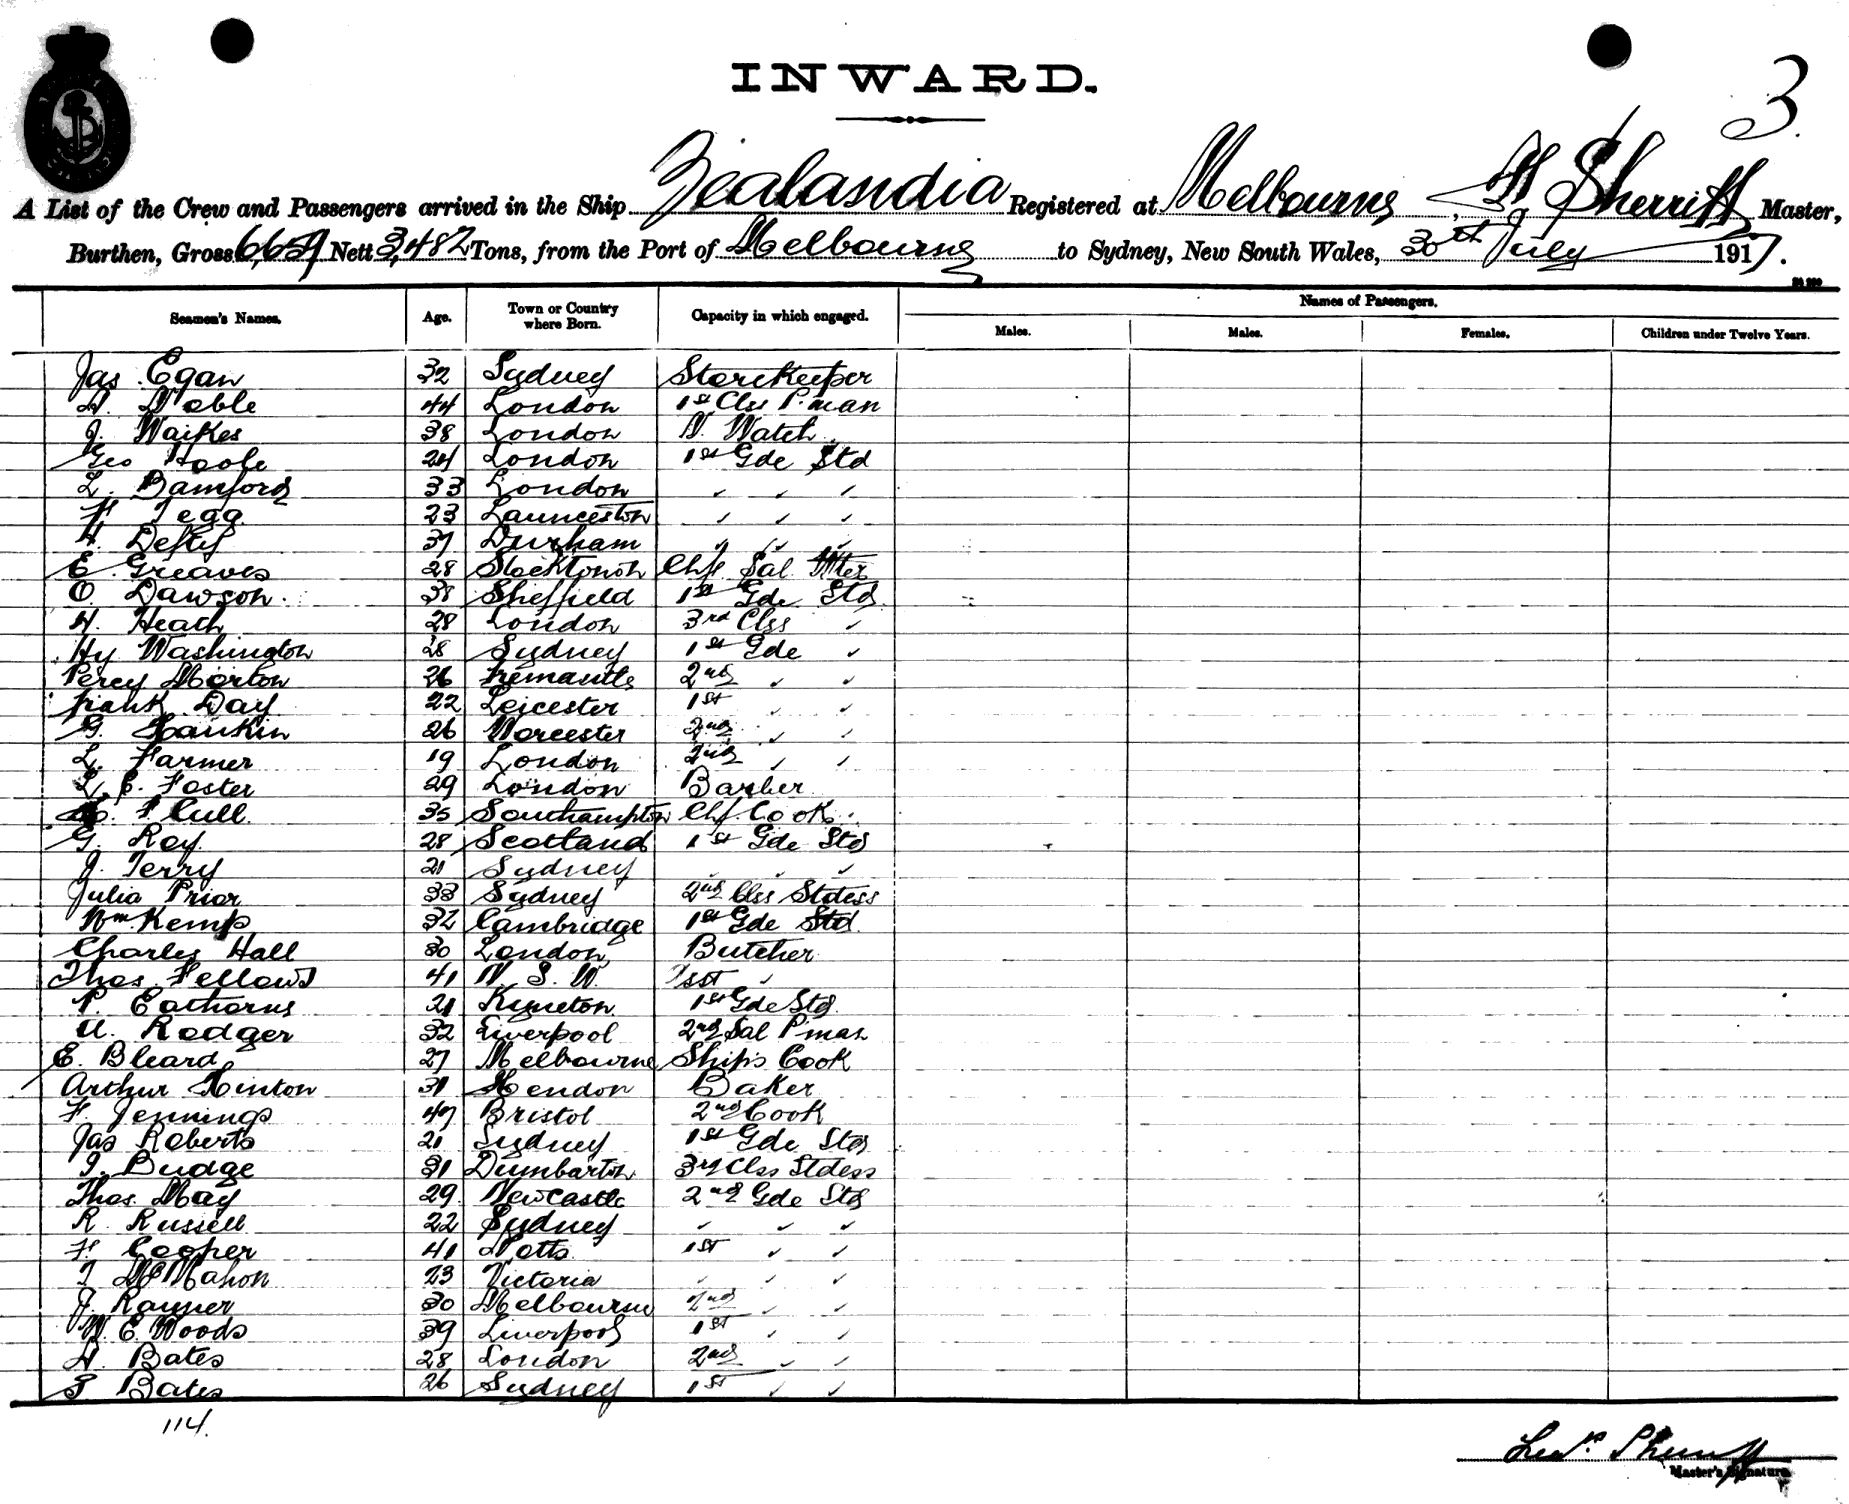 INWARD.
3.
A List of the Crew and Passengers arrived in the Ship Zealandia Registered at Melbourne, Sherriff Master,
Burthen, Gross 6,659 Nett 3,482 Tons, from the Port of Melbourne to Sydney, New South Wales, 30th July 1917.
Seamen's Names. Age. Town or Country where Born. Capacity in which engaged. Names of Passengers.
Males. Males. Females. Children under Twelve Years.
Jas Egan 32 Sydney Storekeeper
A. Noble 44 London 1st Clss P.man
J. Waikes 38 London N. Watch
Geo Hoole 24 London 1st Gde Std
L. Bamford 33 London " " "
H Tegg 23 Launceston " " "
H. Defty 37 Durham " " "
E. Greaves 28 Stockton Chf. Sal Wter
O. Dawson 38 Sheffield 1st Gde Std
H. Heath 28 London 3rd Clss "
Hy Washington 28 Sydney 1st Gde "
Percy Morton 26 Fremantle 2nd " "
Frank Day 22 Leicester 1st " "
G. Hankin 26 Worcester 2nd " "
L. Farmer 19 London 2nd " "
L. E. Foster 29 London Barber
F Cull 35 Southampton Chf. Cook
G. Roy 28 Scotland 1st Gde Std
J. Terry 21 Sydney " " "
Julia Prior 33 Sydney 2nd Clss Stdess
Wm Kemp 32 Cambridge 1st Gde Std
Charles Hall 30 London Butcher
Thos Fellows 41 N. S. W. Asst "
P. Eathorne 21 Kyneton 1st Gde Std
A. Rodger 32 Liverpool 2nd Sal P'man
E. Bleard 27 Melbourne Ship's Cook
Arthur Hinton 31 Hendon Baker
F. Jennings 47 Bristol 2nd Cook
Jas Roberts 21 Sydney 1st Gde Std
I. Budge 31 Dumbarton 3rd Clss Stdess
Thos. May 29 Newcastle 2nd Gde Std
R. Russell 22 Sydney " " "
F. Cooper 41 Notts 1st " "
T McMahon 23 Victoria " " "
J. Rayner 30 Melbourne 2nd " "
W. E. Woods 39 Liverpool 1st " "
A. Bates 28 London 2nd " "
Bates 26 Sydney 1st " "
114.
Sherriff
Master's Signature.